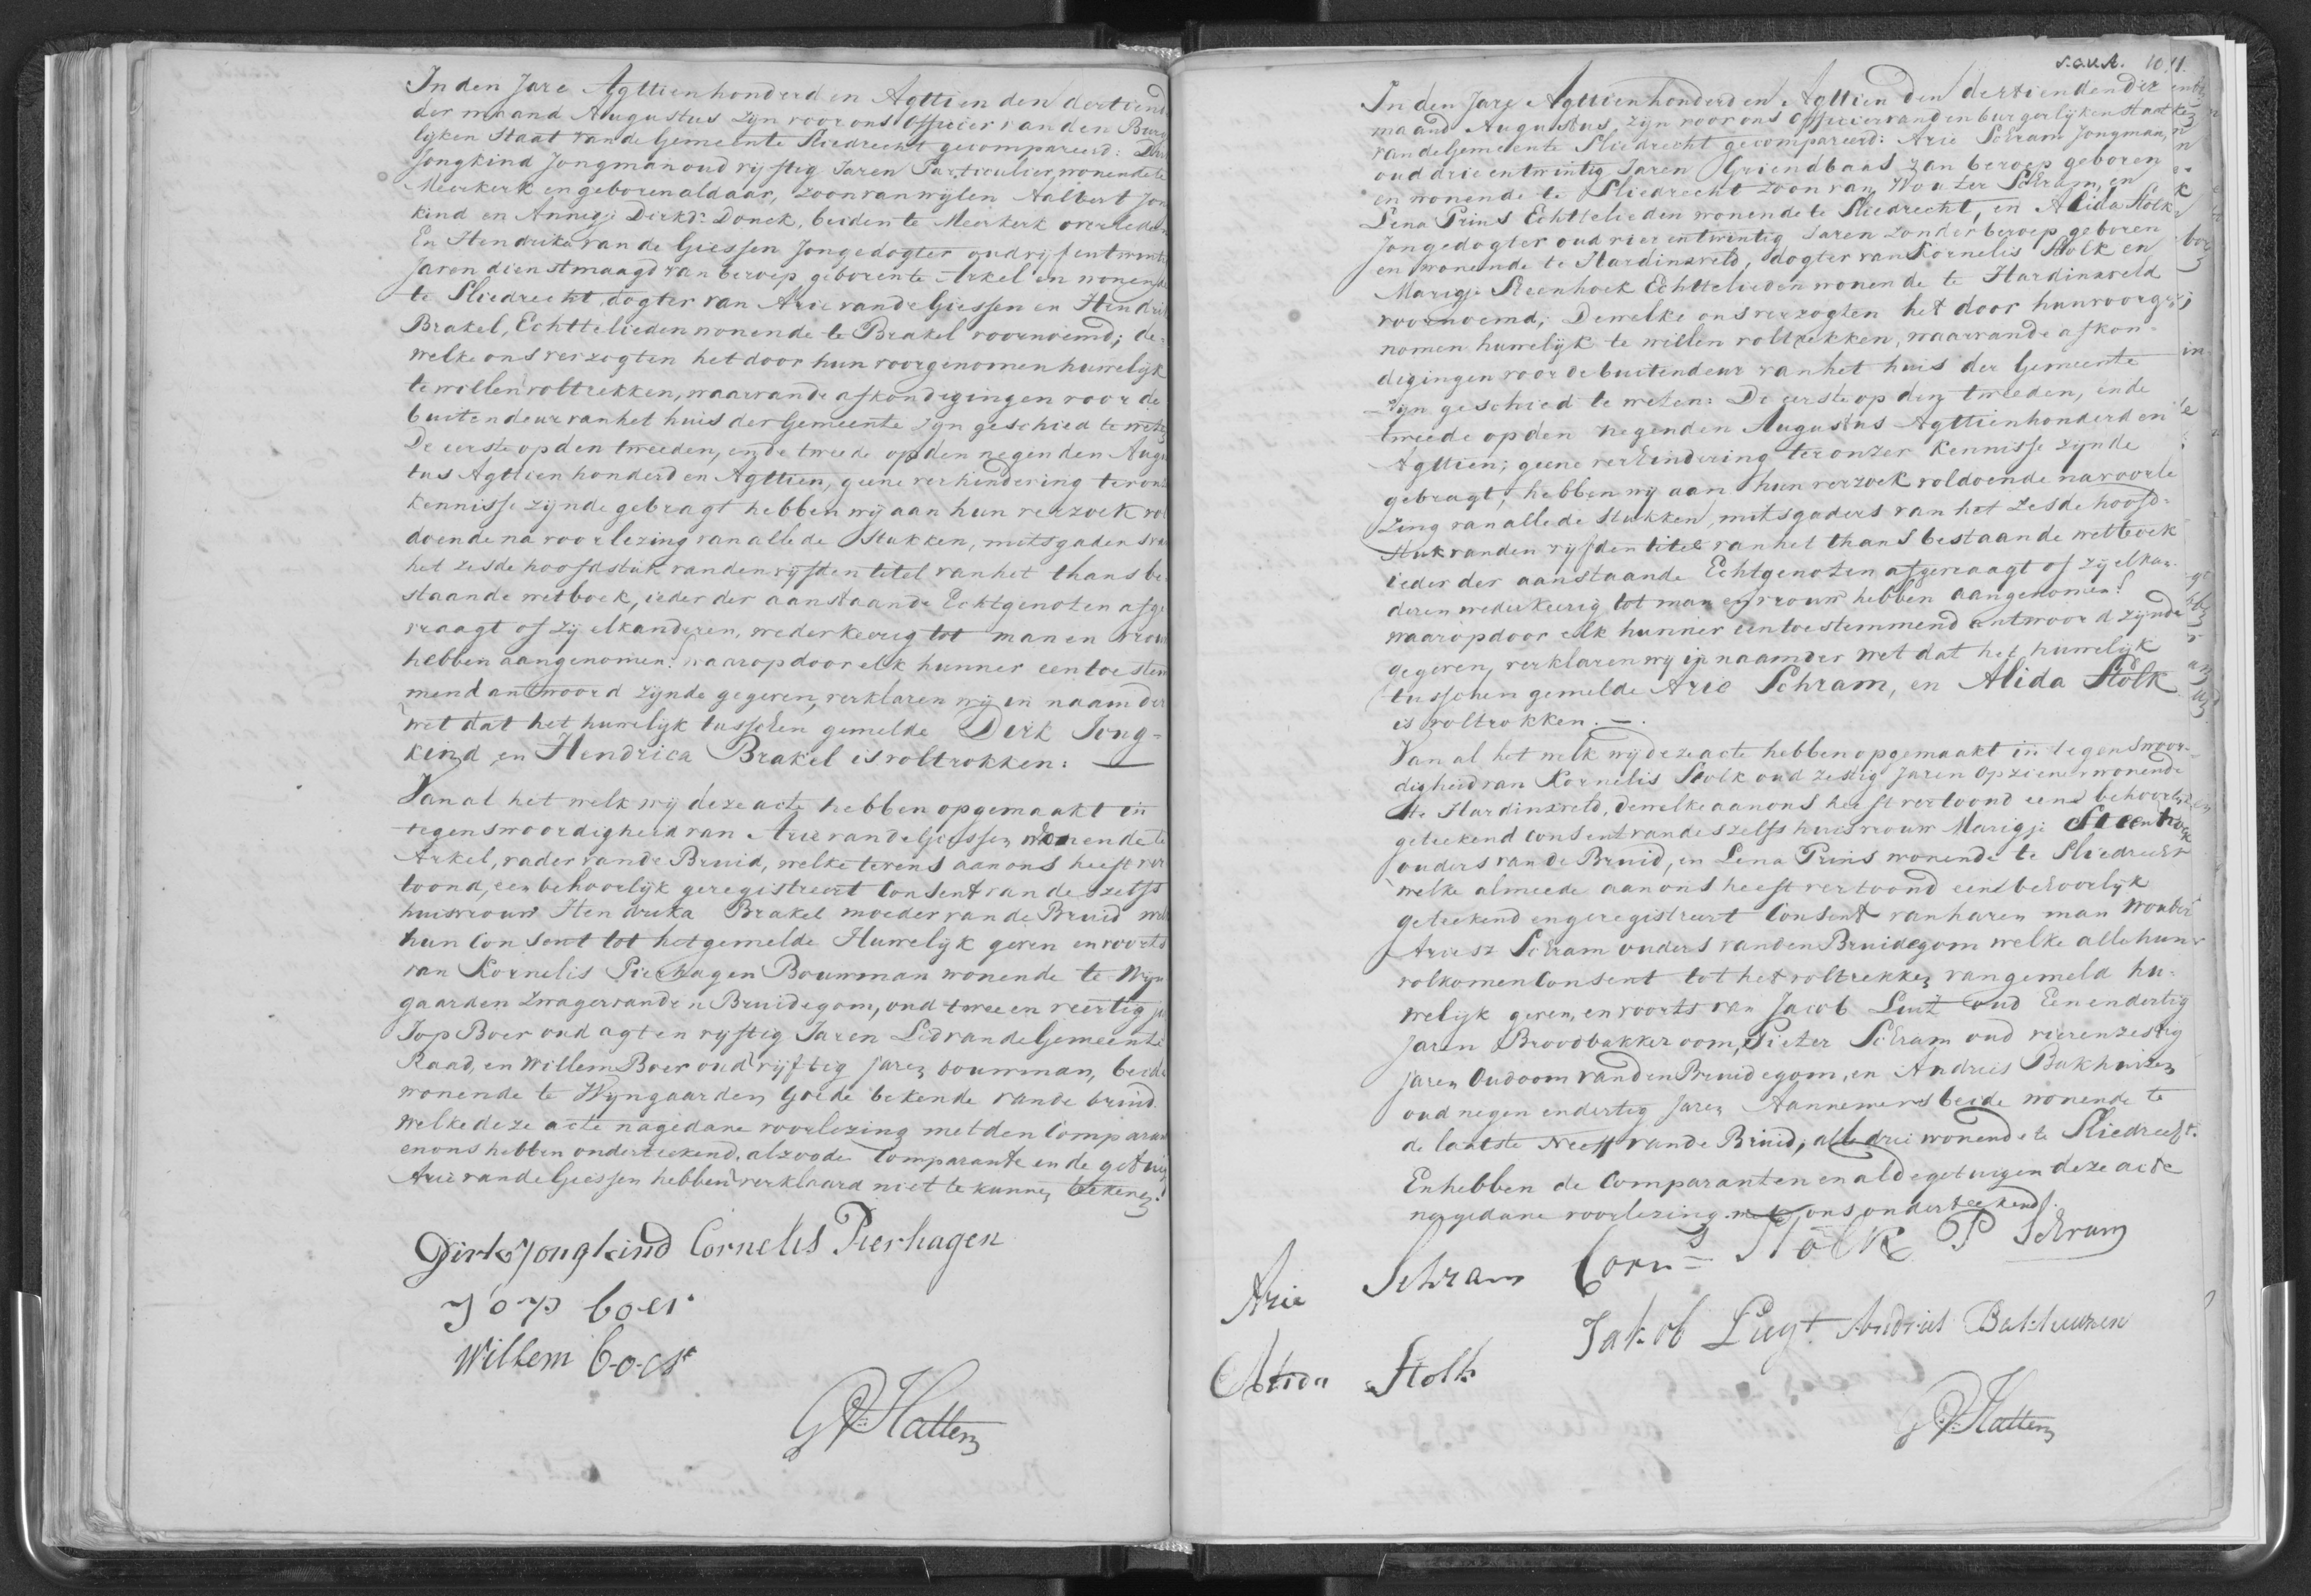 In den Jare Agttienhonderd en Agttien den dertiend
der maand Augustus zijn voor ons Officier van den Burg
lijken Staat van de Gemeente Sliedrecht gecompareerd: Dirk
Jongkind Jongman oud vijftig Jaren Particulier, wonende te
Meerkerk en geboren aldaar, zoon van wijlen Aalbert Jon
kind en Annegje Dirkdr Donck, beiden te Meerkerk overleden
En Hendrika van de Giessen Jongedogter oud vijf entwint
Jaren dienstmaagd van beroep geboren te Arkel en wonende
te Sliedrecht, dogter van Arie van de Giessen en Hendri
Brakel, Echttelieden wonende te Brakel voornoemd; de
welke ons verzogten het door hun voorgenomen huwelijk
te willen voltrekken, waarvan de afkondigingen voor de
buitendeur van het huis der Gemeente zijn geschied te weten
De eerste op den tweeden, en de tweede op den negenden Augus
tus Agttienhonderd en Agttien, geene verhindering ter onz
kennisse zijnde gebragt hebben wij aan hun verzoek vol
doende na voorlezing van alle de Stukken, mitsgaders van
het zesde hoofdstuk van den vijfden titel van het thans be
staande wetboek, ieder der aanstaande Echtgenoten afge
vraagt of zij elkanderen wederkeerig tot man en vrouw
hebben aangenomen? waarop door elk hunner een toestem
mend antwoord zijnde gegeven, verklaren wij in naam der
wet dat het huwelijk tusschen gemelde Dirk Jong-
kind en Hendrica Brakel is voltrokken: —
Van al het welk wij deze acte hebben opgemaakt in
tegenswoordigheid van Arie van de Giessen wonende te
Arkel, vader van de Bruid, welke tevens aan ons heeft ver
toond, een behoorlijk geregistreert Consent van deszelfs
huisvrouw Hendrika Brakel moeder van de Bruid welk
hun Consent tot het gemelde Huwelijk geven en voorts
van Kornelis Pierhagen Bouwman wonende te Wijn
gaarden zwager van den Bruidegom, oud twee en veertig ja
Jop Boer oud agt en vijftig Jaren Lid van de Gemeente
Raad, en Willem Boer oud vijftig jaren bouwman, beide
wonende te Wijngaarden goede bekende van de bruid
welke deze acte na gedane voorlezing met den Comparant
en ons hebben onderteekend, alzoo de Comparante en de getuig
Arie van de Giessen hebben verklaard niet te kunnen teekenen.
Dirk Jongkind Cornelis Pierhagen
Jop boer
Willem boer
GVHatten
S.O.U.A. 10.11.
In den Jare Agttienhonderd en Agttien den dertienden der
maand Augustus, zijn voor ons Officier van den burgerlijken Staat
van de Gemeente Sliedrecht gecompareerd: Arie Schram Jongman,
oud drie entwintig Jaren Griendbaas van beroep geboren
en wonende te Sliedrecht zoon van Wouter Schram, en
Lena Prins Echttelieden wonende te Sliedrecht, en Alida Stolk
Jongedogter oud vier entwintig Jaren zonder beroep geboren
en wonende te Hardinxveld, dogter van Kornelis Stolk en
Marigje Steenhoek Echttelieden wonende te Hardinxveld
voornoemd; Dewelke ons verzogten het door hun voorge
nomen huwelijk te willen voltrekken, waarvan de afkon-
digingen voor de buitendeur van het huis der Gemeente
zijn geschied te weten: De eerste op den tweeden, en de
tweede op den negenden Augustus Agttienhonderd en
Agttien; geene verhindering ter onzer kennisse zijnde
gebragt, hebben wij aan hun verzoek voldoende na voorle
zing van alle de Stukken, mitsgaders van het zesde hoofd-
stuk van den vijfden titel van het thans bestaande wetboek
ieder der aanstaande Echtgenoten afgevraagt of zij elkan-
deren wederkeerig tot man en vrouw hebben aangenomen?
waarop door elk hunner een toestemmend antwoord zijnde
gegeven, verklaren wij in naam der wet dat het huwelijk
tusschen gemelde Arie Schram, en Alida Stolk
is voltrokken. —.
Van al het welk wij deze acte hebben opgemaakt in tegenswoor-
digheid van Kornelis Stolk oud zestig Jaren Opziener wonende
te Hardinxveld, dewelke aan ons heeft vertoond eene behoorlijk
geteekend consent van deszelfs huisvrouw Marigje Steenhoek
ouders van de Bruid, en Lena Prins wonende te Sliedrecht
welke almeede aan ons heeft vertoond eene behoorlijk
geteekend en geregistreert Consent van haren man Wouter
Ariesz Schram ouders van den Bruidegom welke alle hun
volkomen Consent tot het voltrekken van gemeld hu-
welijk geven, en voorts van Jacob Luit oud Een en dertig
Jaren Broodbakker oom, Pieter Schram oud vier en zestig
jaren Oudoom van den Bruidegom, en Andries Bakhuizen
oud negen en dertig Jaren Aannemer beide wonende te
de laatste Neeff van de Bruid, alle drie wonende te Sliedrecht.
En hebben de Comparanten en alde getuigen deze acte
na gedane voorlezing met ons onderteekend.
Arie Schram Corns Stolk P Schram
Jakob Luyt Andries Bakhuizen
Alida Stolk
GVHatten